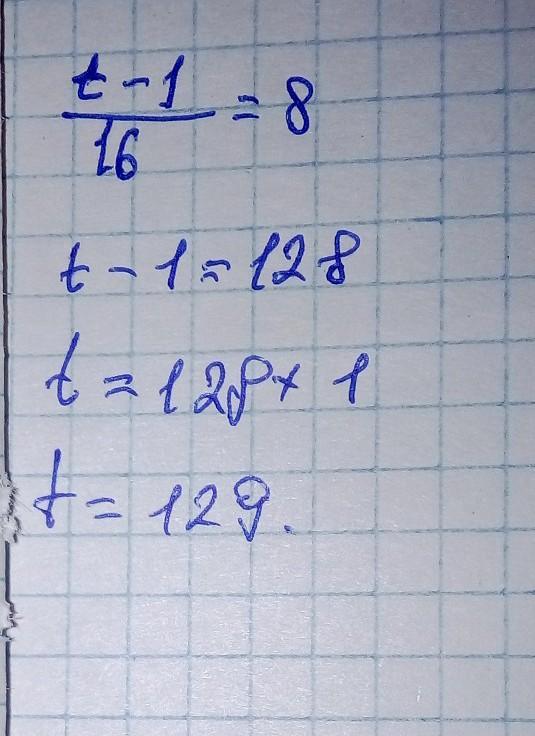 t - 1
16
= 8
t - 1 = 128
t = 128 + 1
t = 129.